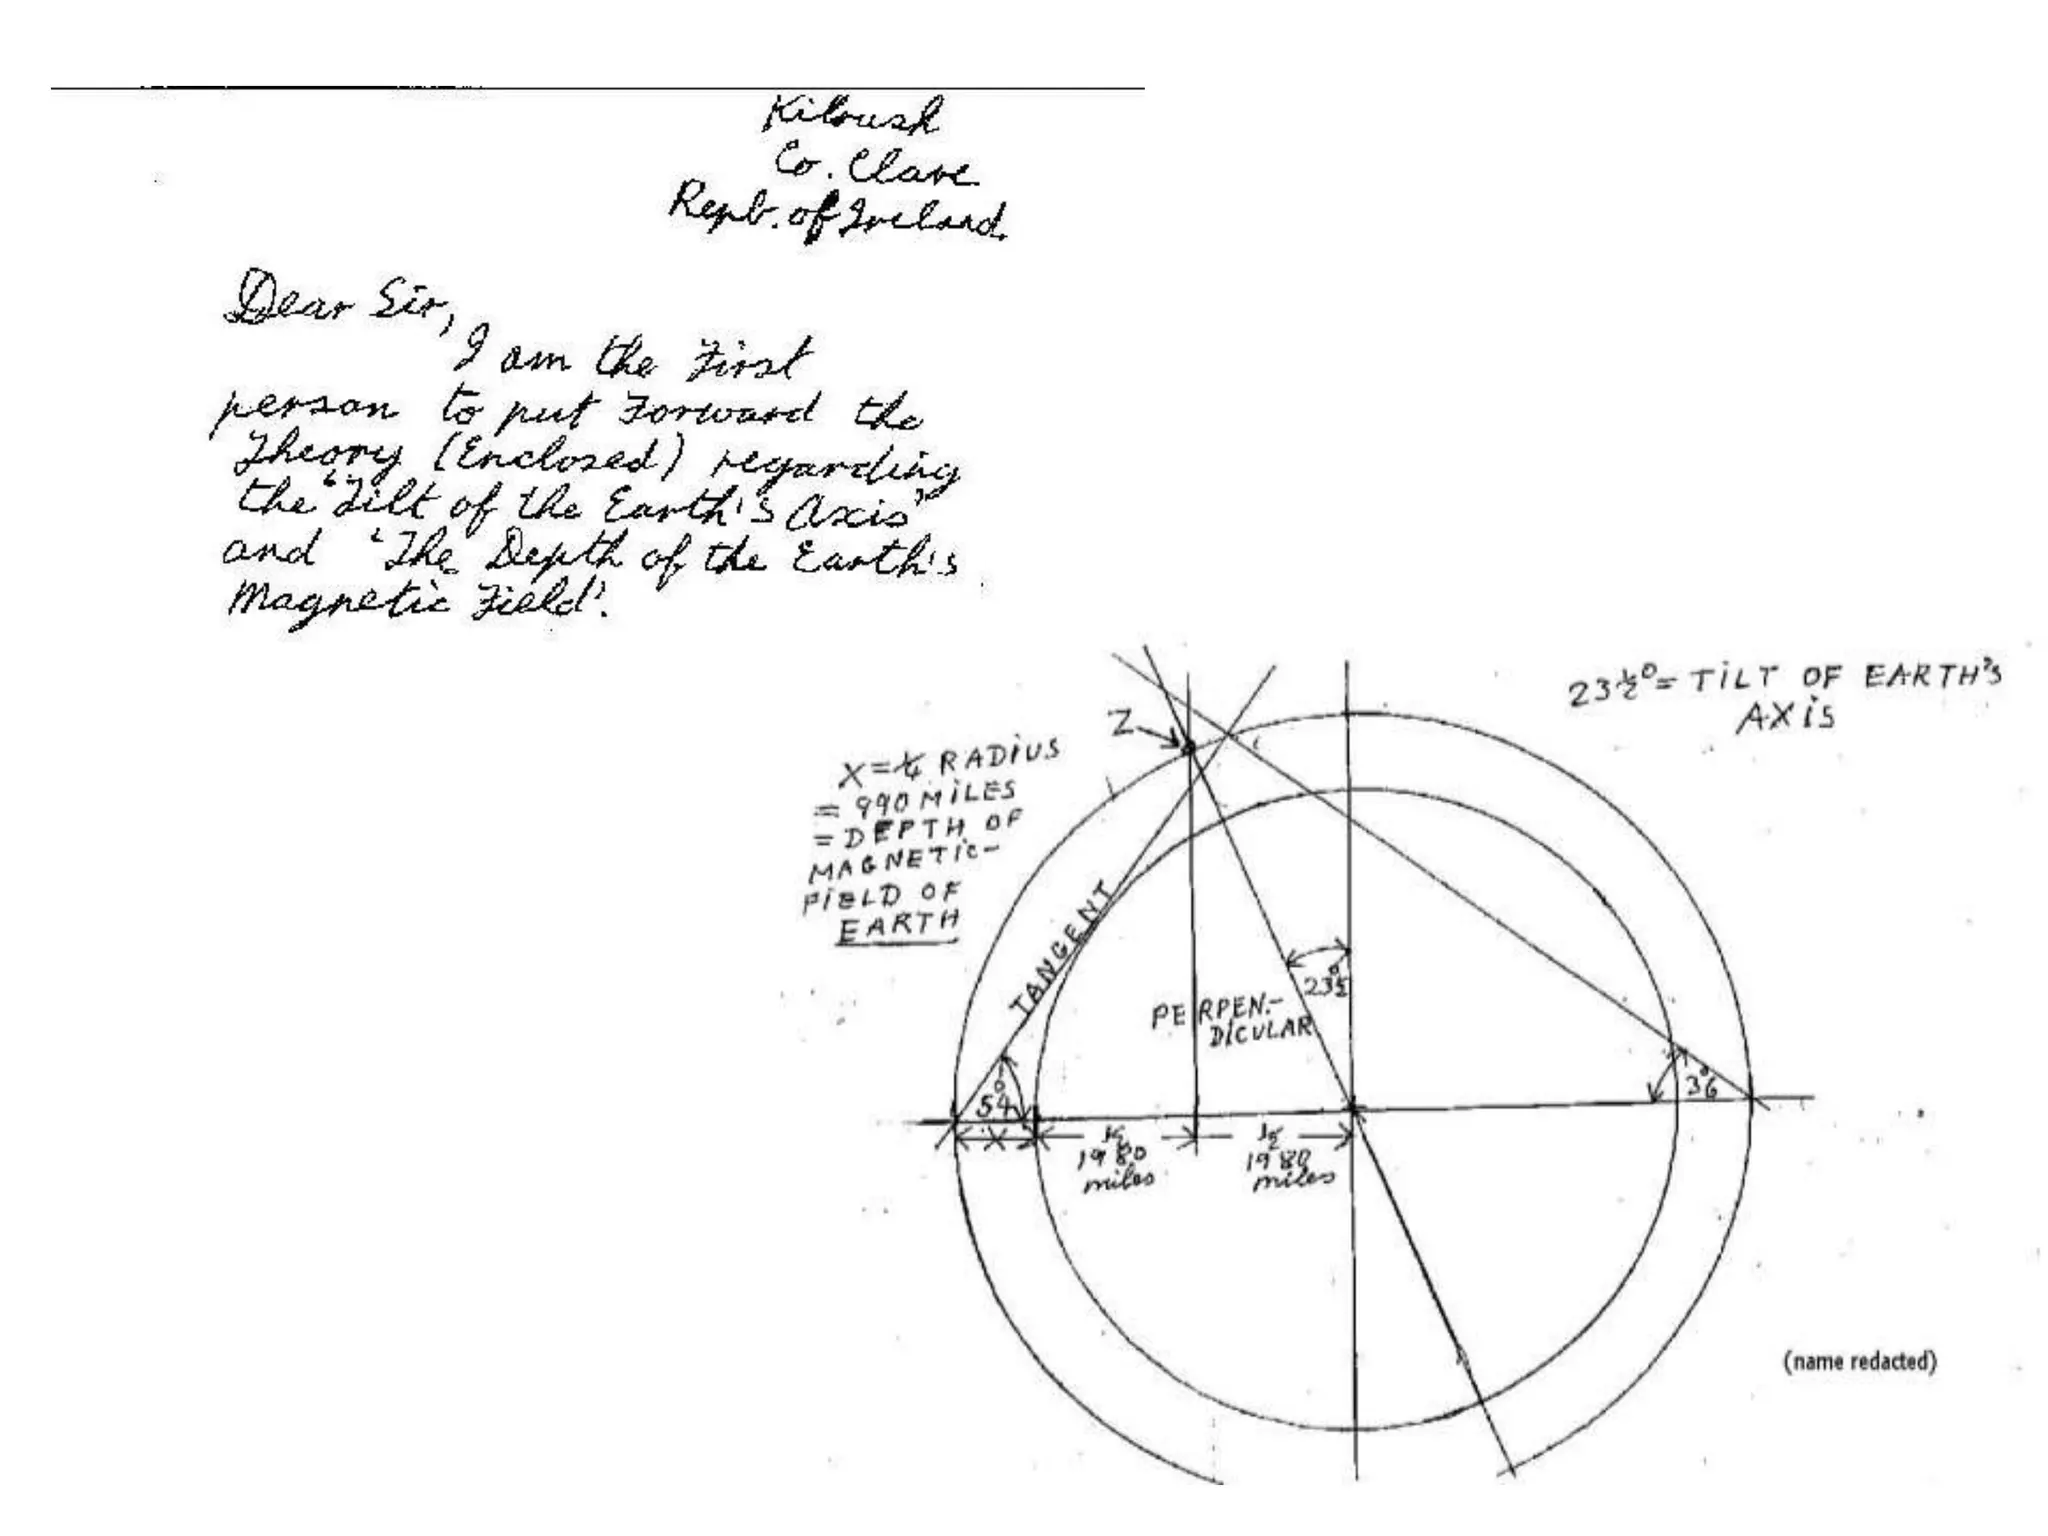 Kilrush
Co. Clare
Repb. of Ireland.
Dear Sir,
I am the First
person to put Forward the
Theory (Enclosed) regarding
the "Tilt of the Earth's Axis"
and 'The Depth of the Earth's
Magnetic Field'.
23½°= TILT OF EARTH'S
AXIS
Z
X=¼ RADIUS
= 990 MILES
= DEPTH OF
MAGNETIC-
FIELD OF
EARTH
TANGENT
23½°
PERPEN.-
DICULAR
54°
36°
X
½
1980
miles
½
1980
miles
(name redacted)